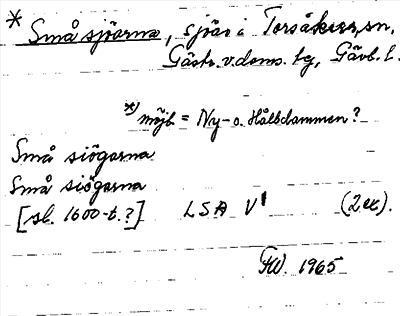 * Små sjöarna, sjöar i Torsåkers sn,
Gästr. v. doms. tg, Gävb. l.
*) möjl = Ny- o. Hållsdammen?
Små siögarna
Små siögarna
[sl. 1600-t.?] LSA V¹ (2 ex).
FW. 1965